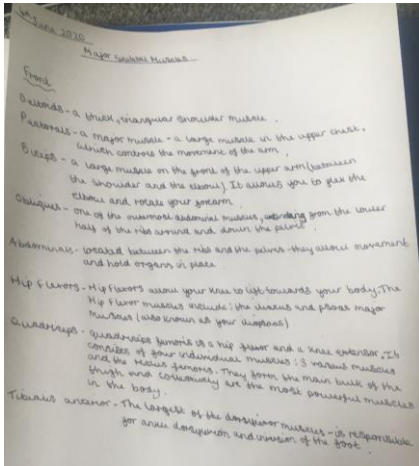 June 2020
Major Skeletal Muscles
Front
Deltoids - a thick, triangular shoulder muscle.
Pectorals - a major muscle - a large muscle in the upper chest,
which controls the movement of the arm.
Biceps - a large muscle on the front of the upper arm (between
the shoulder and the elbow). It allows you to flex the
elbow and rotate your forearm.
Obliques - one of the outermost abdominal muscles, extending from the lower
half of the ribs around and down the pelvis.
Abdominals - located between the ribs and the pelvis - they allow movement
and hold organs in place.
Hip flexors - Hip flexors allow your knee to lift towards your body. The
Hip flexor muscles include: the iliacus and psoas major
muscles (also known as your iliopsoas)
Quadriceps - quadriceps femoris is a hip flexor and a knee extensor. It
consists of four individual muscles: 3 vastus muscles
and the rectus femoris. They form the main bulk of the
thigh and collectively are the most powerful muscles
in the body.
Tibialis anterior - The largest of the dorsiflexor muscles - is responsible
for ankle dorsiflexion and inversion of the foot.